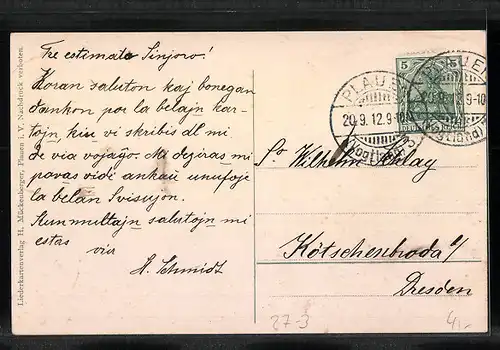 Tre estimata Sinjoro!
Koran saluton kaj bonegan
dankon por la belajn kar-
tojn, kiu vi skribis al mi
de via vojaĝo. Mi deziras mi
povas vidi ankaŭ unufoje
la belan Svisujon.
Sun multajn salutojn mi
estas
via
H. Schmidt
Liederkartenverlag H. Mückenberger, Plauen i. V. Nachdruck verboten.
5
PLAUEN
20.9.12.9-10
(Vogtland)
PLAUEN
20.9.12.9-10
(Vogtland)
So Wilhelm
Kötschenbroda b/
Dresden
27-3
4,-